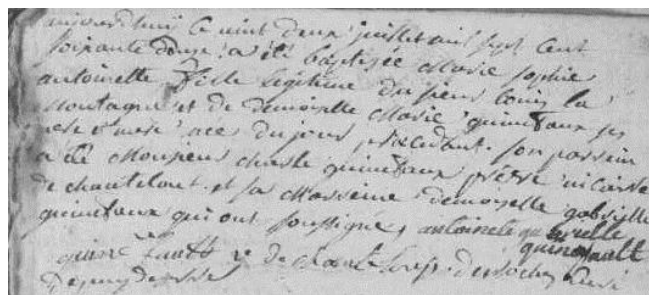 aujourd'huy le vint deux juillet mil sept cent
soixante douze a été baptisée Marie sophie
antoinette fille legitime du sieur Louis la
Montagne et de demoiselle Marie quinetaux ses
pere et mere nee du jour précédant. son parrein
a été Monsieur charle quinetaux prêtre vicaire
de chantelout et sa Marreine demoiselle gabrielle
quinetaux qui ont soussigné, antoinete gabrielle
quineault
quinetault de